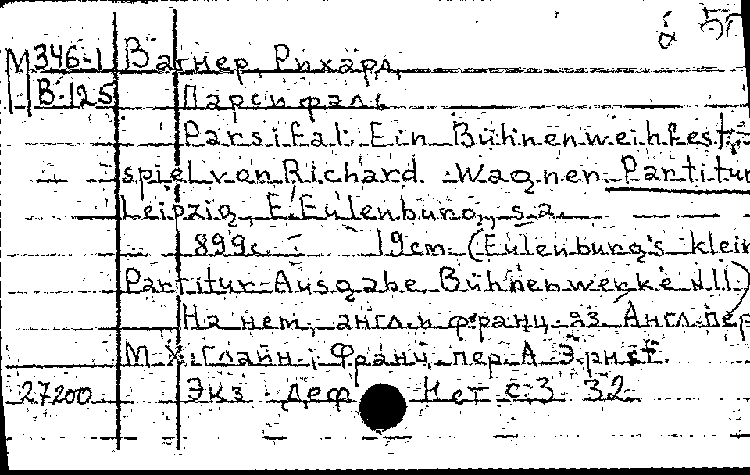 М346-1 Вагнер, Рихард,
В-125 Парсифаль
Parsifal: Ein Bühnenweihfest-
spiel von Richard Wagner. Partitur
Leipzig, E. Eulenburg, s.a.
899с. 19cm. (Eulenburg's klein
Partitur-Ausgabe. Bühnenwerke
На нем., англ. и франц. яз. Англ. пер.
М.Х. Глайн; Франц. пер. А. Эрнст.
27200 Экз. деф. Нет с. 3-32